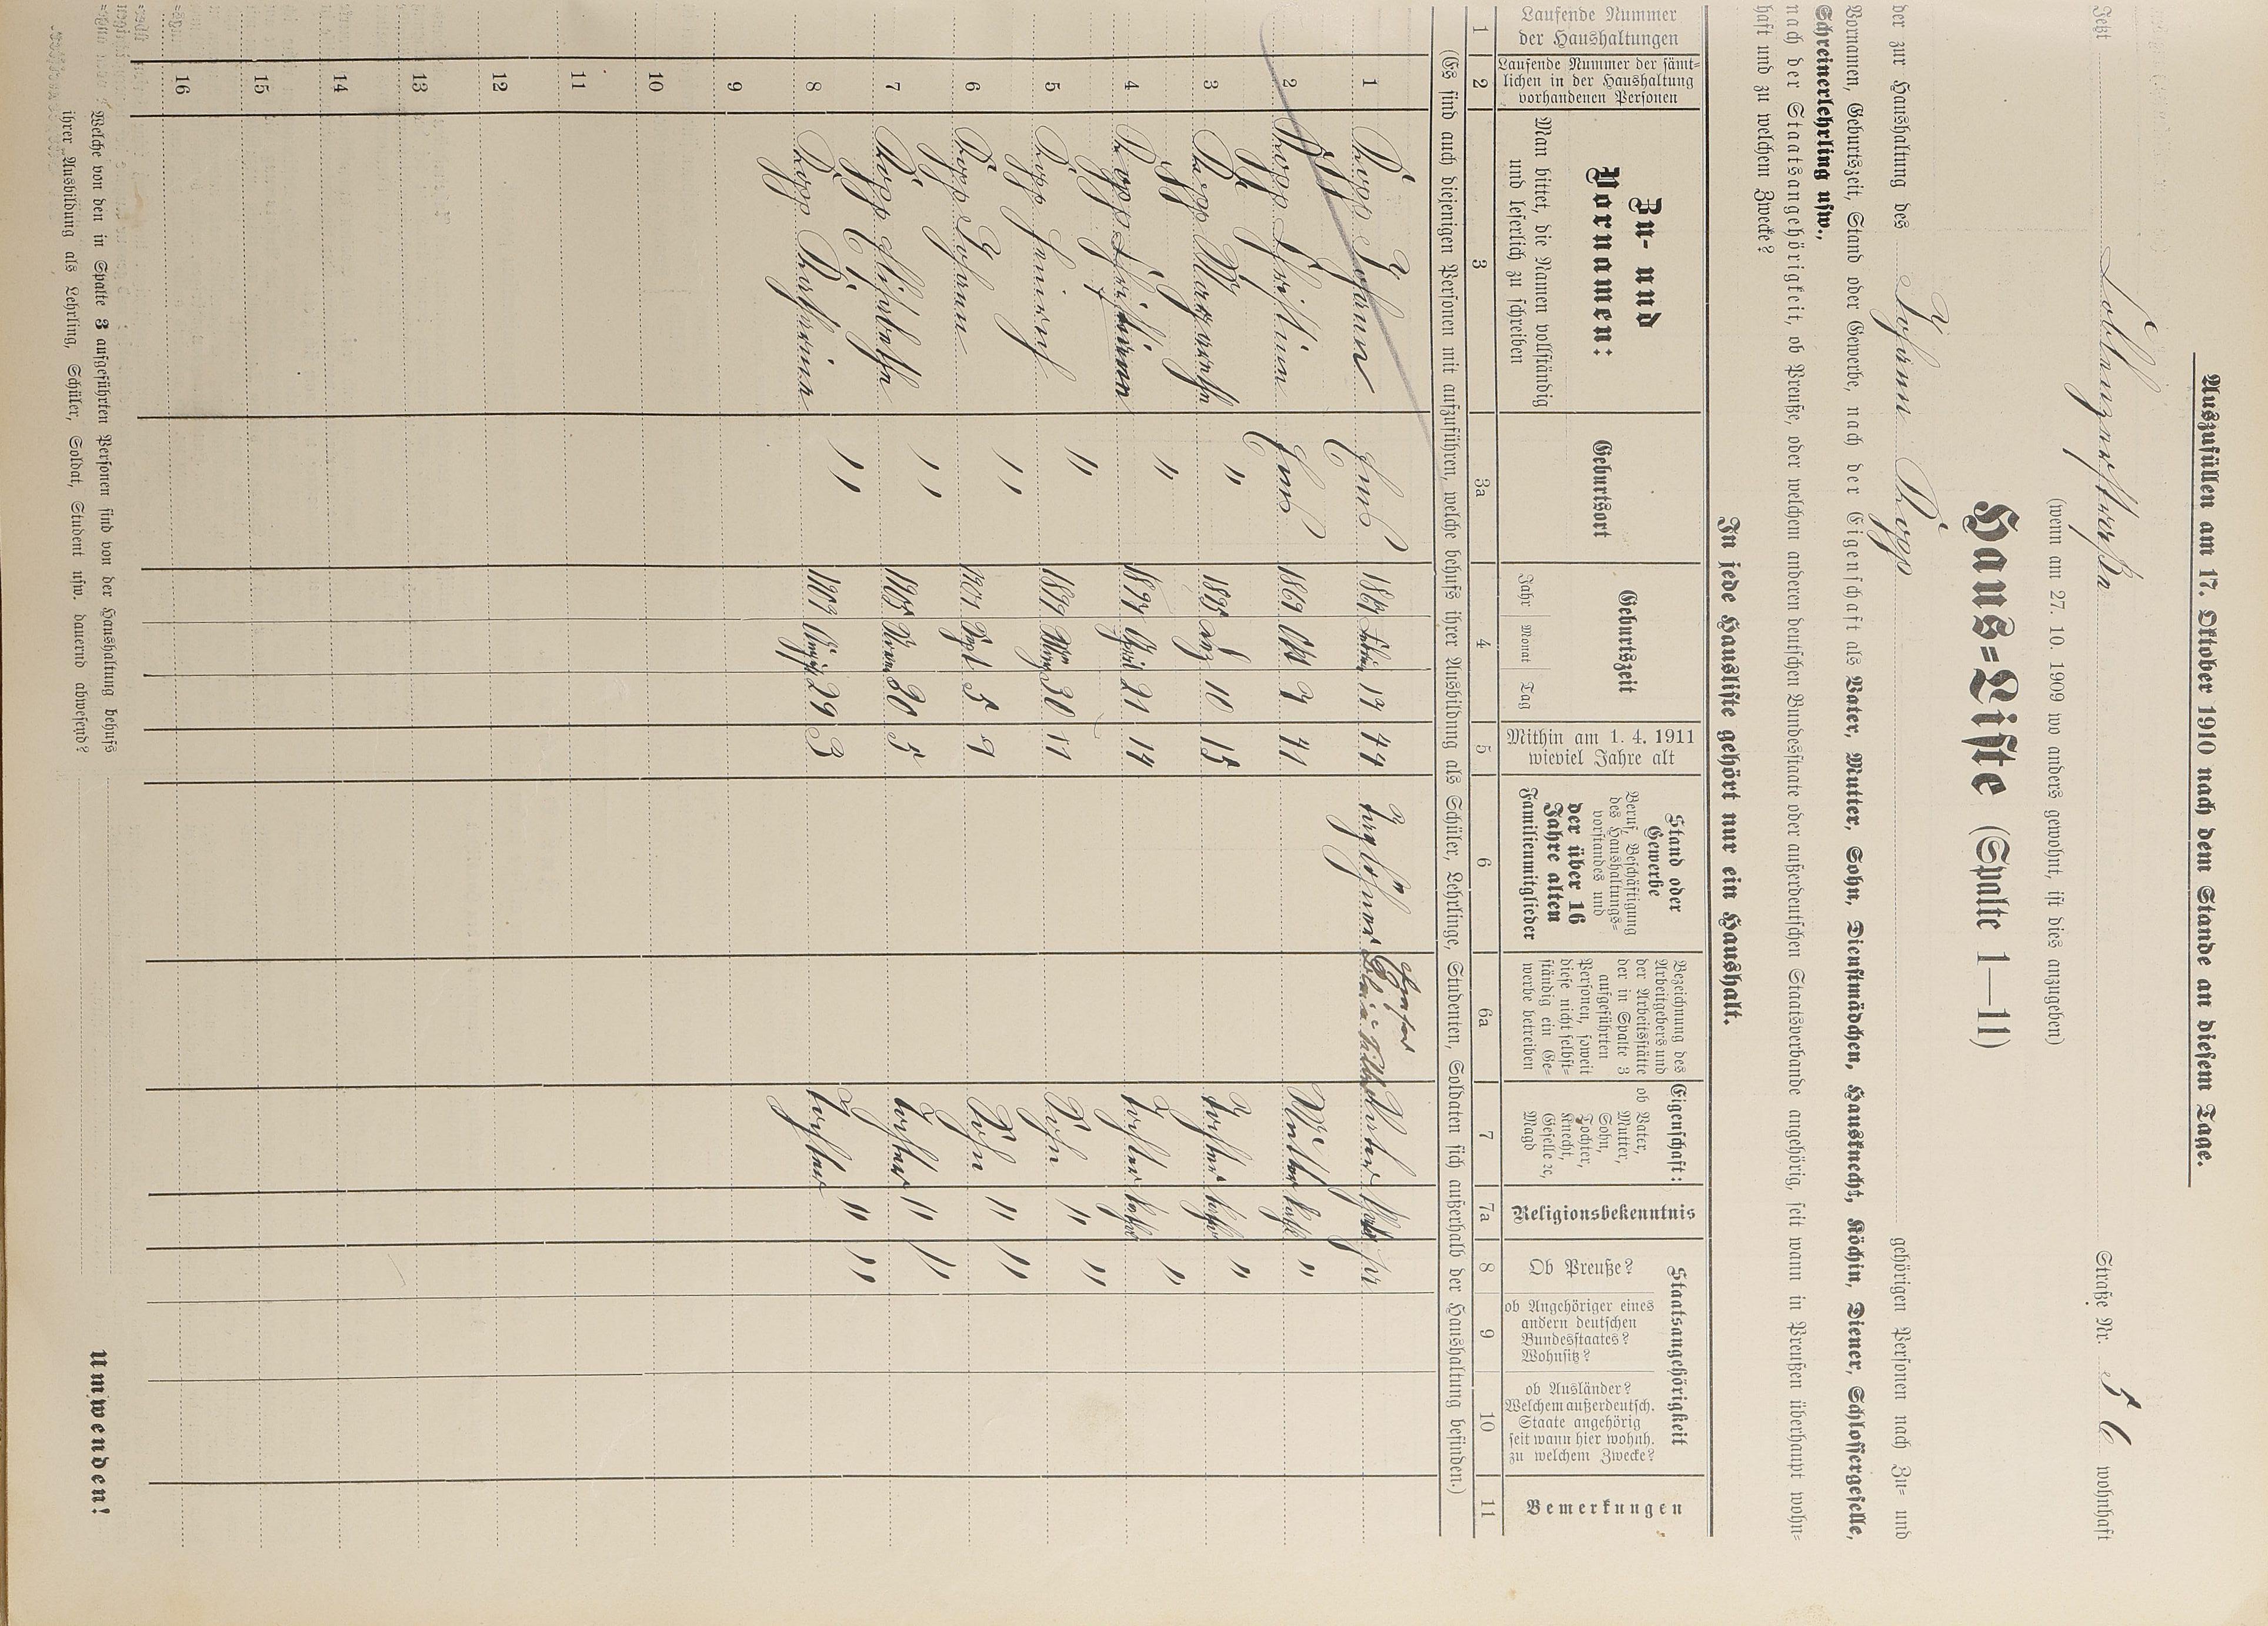 Auszufüllen am 17. Oktober 1910 nach dem Stande an diesem Tage.
Jetzt Coblenzerstraße Straße Nr. 56 wohnhaft
(wenn am 27. 10. 1909 wo anders gewohnt, ist dies anzugeben)
Haus=Liste (Spalte 1—11)
der zur Haushaltung des Johann Ropp gehörigen Personen nach Zu- und
Vornamen, Geburtszeit, Stand oder Gewerbe, nach der Eigenschaft als Vater, Mutter, Sohn, Dienstmädchen, Hausknecht, Köchin, Diener, Schlossergeselle,
Schreinerlehrling usw.,
nach der Staatsangehörigkeit, ob Preuße, oder welchem anderen deutschen Bundesstaate oder außerdeutschen Staatsverbande angehörig, seit wann in Preußen überhaupt wohn-
haft und zu welchem Zwecke?
In jede Hausliste gehört nur ein Haushalt.
Laufende Nummer der Haushaltungen
Laufende Nummer der sämt-lichen in der Haushaltung vorhandenen Personen
Zu- und Vornamen:
Man bittet, die Namen vollständig und leserlich zu schreiben
Geburtsort
Geburtszeit
Jahr Monat Tag
Mithin am 1. 4. 1911 wieviel Jahre alt
Stand oder Gewerbe
Beruf, Beschäftigung des Haushaltungs-vorstandes und
der über 16 Jahre alten Familienmitglieder
Bezeichnung des Arbeitgebers und der Arbeitsstätte der in Spalte 3 aufgeführten Personen, soweit diese nicht selbst-ständig ein Ge-werbe betreiben
Eigenschaft:
ob Vater, Mutter, Sohn, Tochter, Knecht, Geselle ꝛc, Magd
Religionsbekenntnis
Staatsangehörigkeit
Ob Preuße?
ob Angehöriger eines andern deutschen Bundesstaates? Wohnsitz?
ob Ausländer? Welchem außerdeutsch. Staate angehörig seit wann hier wohnh. zu welchem Zwecke?
Bemerkungen
1 2 3 3a 4 5 6 6a 7 7a 8 9 10 11
(Es sind auch diejenigen Personen mit aufzuführen, welche behufs ihrer Ausbildung als Schüler, Lehrlinge, Studenten, Soldaten sich außerhalb der Haushaltung befinden.)
1 Ropp Johann Ems 17 44 Taglöhner Vater
2 Ropp Ems 1869 Okt 7 41 Mutter Kath "
3 Ropp Margareth " 1895 10 15 Tochter Kath "
4 Ropp " April 21 14 Tochter Kath "
5 Ropp Heinrich " 1899 März 30 11 Sohn " "
6 Ropp Johann " 1901 Sept 5 9 Sohn " "
7 Ropp Elisabeth " 1905 20 5 Tochter " "
8 Ropp Katharina " 1907 29 3 Tochter " "
9
10
11
12
13
14
15
16
Welche von den in Spalte 3 aufgeführten Personen sind von der Haushaltung behufs
ihrer Ausbildung als Lehrling, Schüler, Soldat, Student usw. dauernd abwesend?
Umwenden!